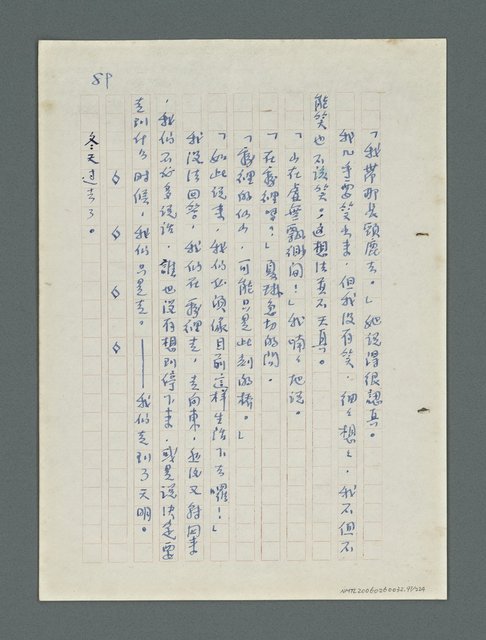 89
「我帶那長頸鹿去。」她說得很認真。
我几乎要笑出來，但我沒有笑，細細想想，我不但不
能笑也不該笑。這想法真不天真。
「山在虛無飄渺間！」我喃喃地說。
「在霧裡嗎？」夏琳急切的問。
「霧裡的仙山，可能只是此刻的橋。」
「如此說來，我們必須像目前這樣生活下去囉！」
我沒法回答，我們在霧裡走，走向東，然後又轉回來
，我們不好多說話，誰也沒有想到停下來，或是說決定要
走到什么時候，我們只是走。——我們走到了天明。
◇ ◇ ◇ ◇
冬天过去了。
NMTL20060260032